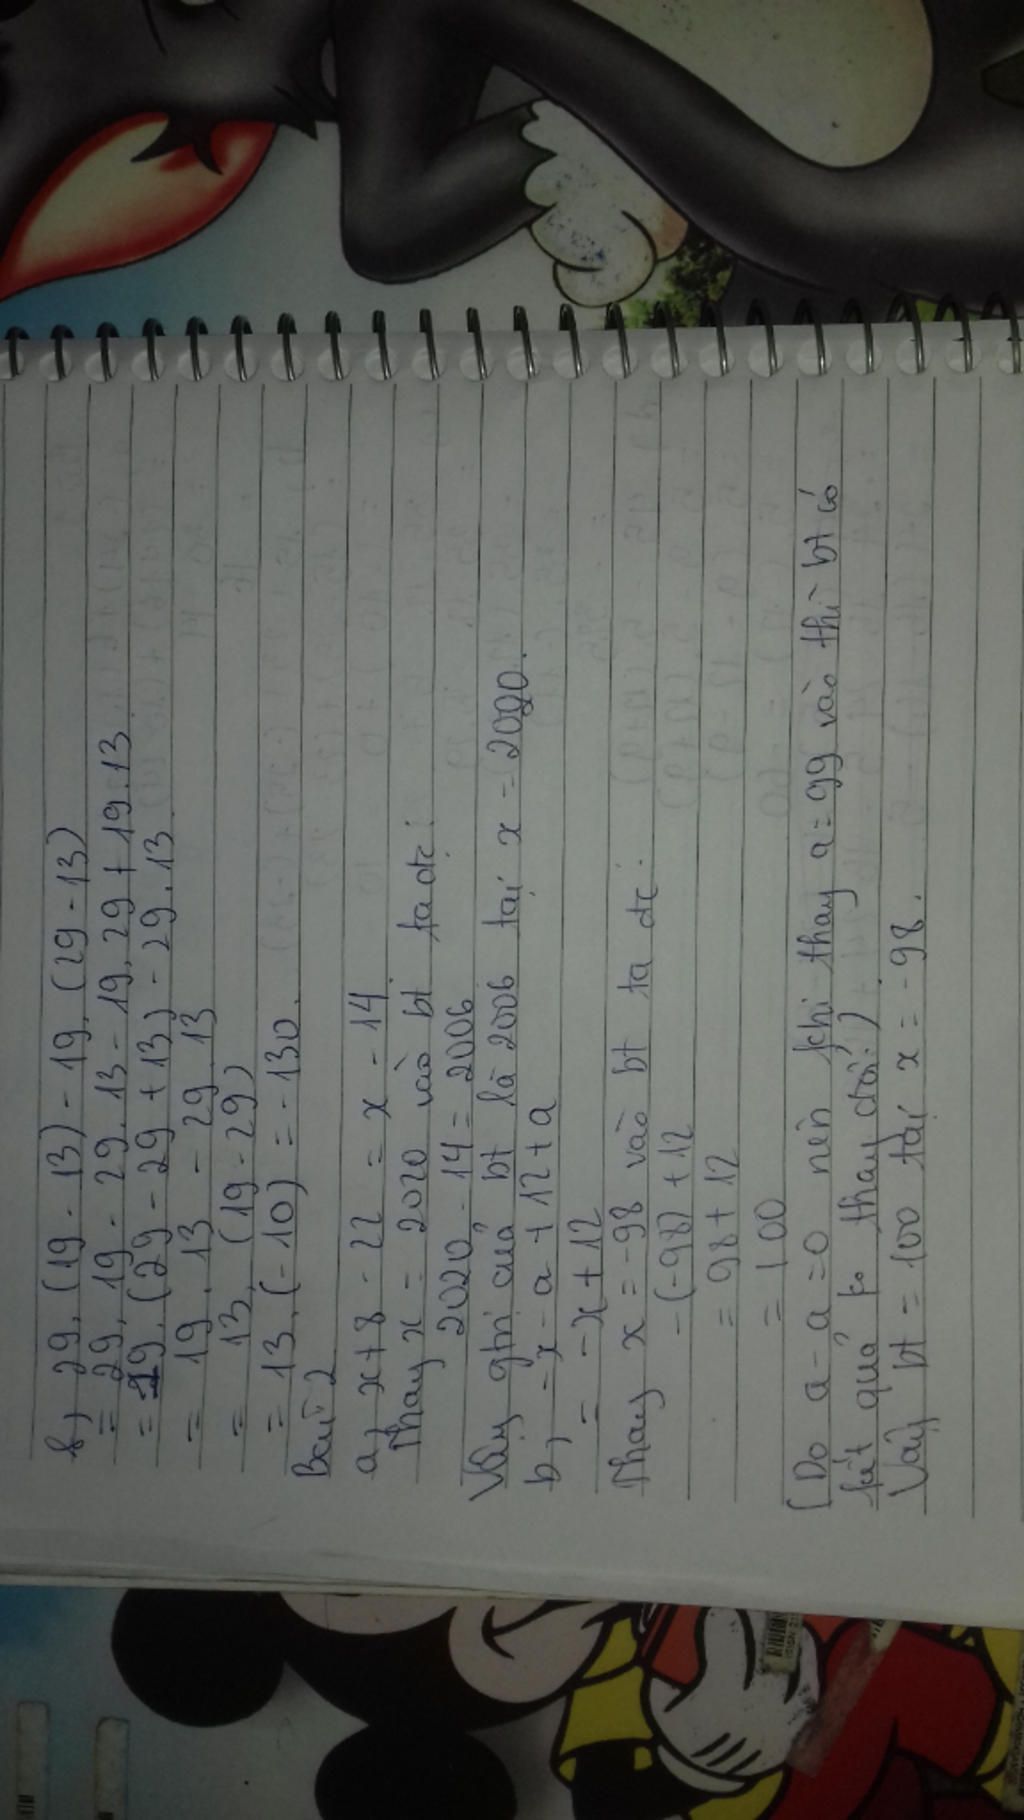 b, 29. (19 - 13) - 19. (29 - 13)
= 29. 19 - 29. 13 - 19. 29 + 19. 13
= 19. (29 - 29 + 13) - 29. 13
= 19. 13 - 29. 13
= 13. (19 - 29)
= 13. (-10) = -130.
Bài 2
a, x + 8 - 22 = x - 14
Thay x = 2020 vào bt ta dc:
2020 - 14 = 2006
Vậy gtri của bt là 2006 tại x = 2020.
b, -x - a + 12 + a
= -x + 12
Thay x = -98 vào bt ta dc:
-(-98) + 12
= 98 + 12
= 100
(Do a - a = 0 nên khi thay a = 99 vào thì bt có
kết quả ko thay đổi)
Vậy bt = 100 tại x = -98.